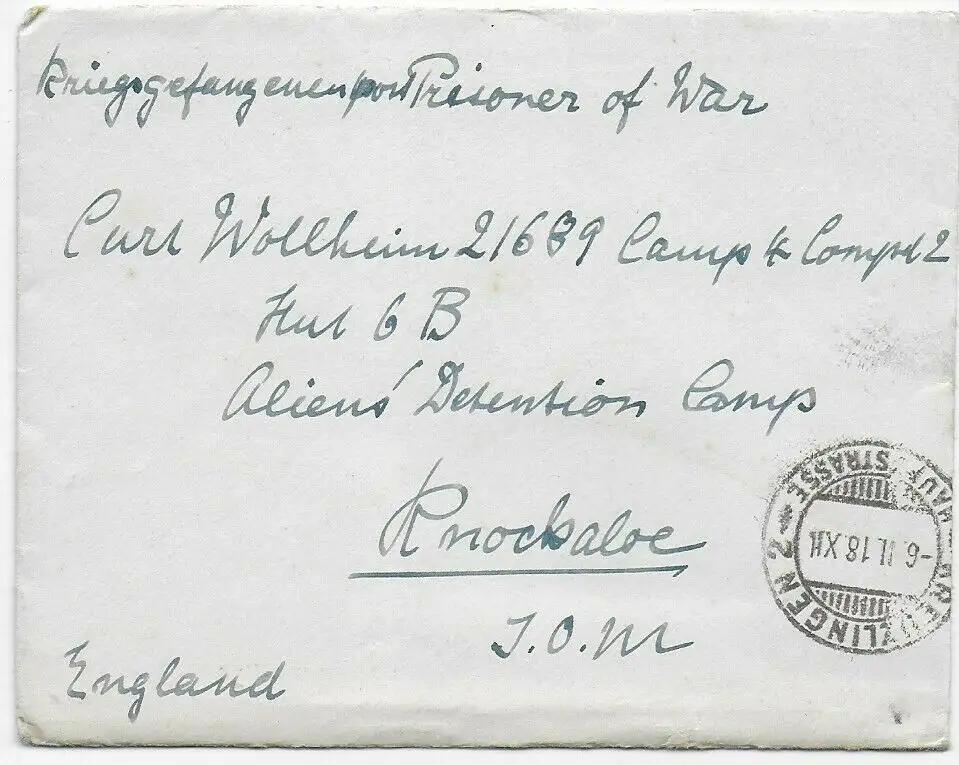 Kriegsgefangenenpost Prisoner of War
Curt Wollheim 21639 Camp 4 Compd 2
Hut 6 B
Aliens' Detention Camp
Knockaloe
I.O.M
England
KREUZLINGEN 2 * HAUPTSTRASSE
-6.II.18 XII